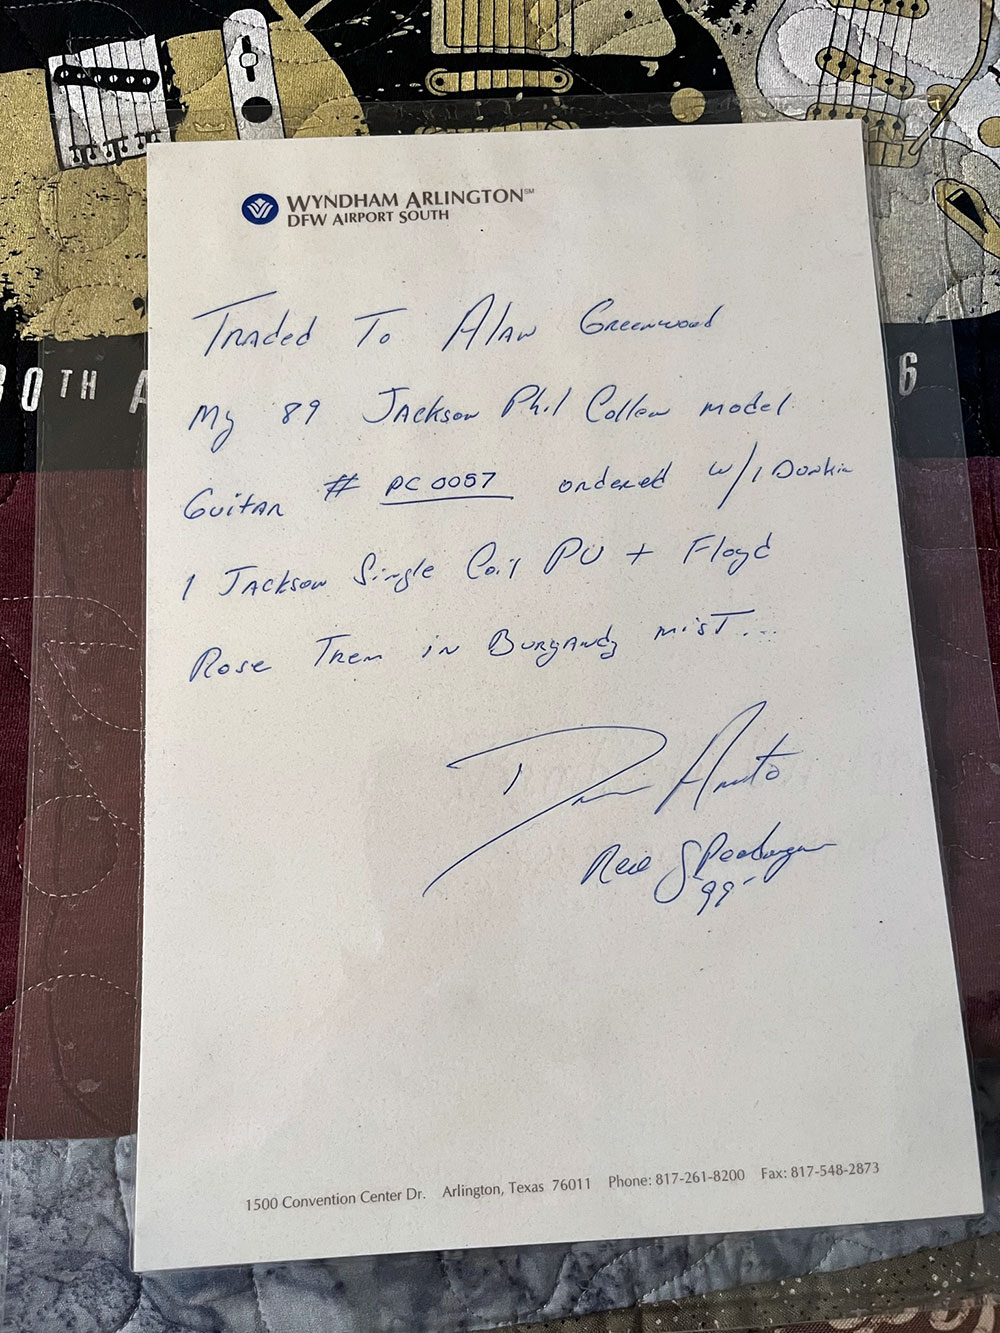 30TH A
6
WYNDHAM ARLINGTON℠
DFW AIRPORT SOUTH
Traded To Alan Greenwood
My 89 Jackson Phil Collen model
Guitar # PC0057 ordered w/1 Dunkin
1 Jackson Single Coil PU + Floyd
Rose Trem in Burgandy mist...
Reo Speedwagon
99-
1500 Convention Center Dr. Arlington, Texas 76011 Phone: 817-261-8200 Fax: 817-548-2873